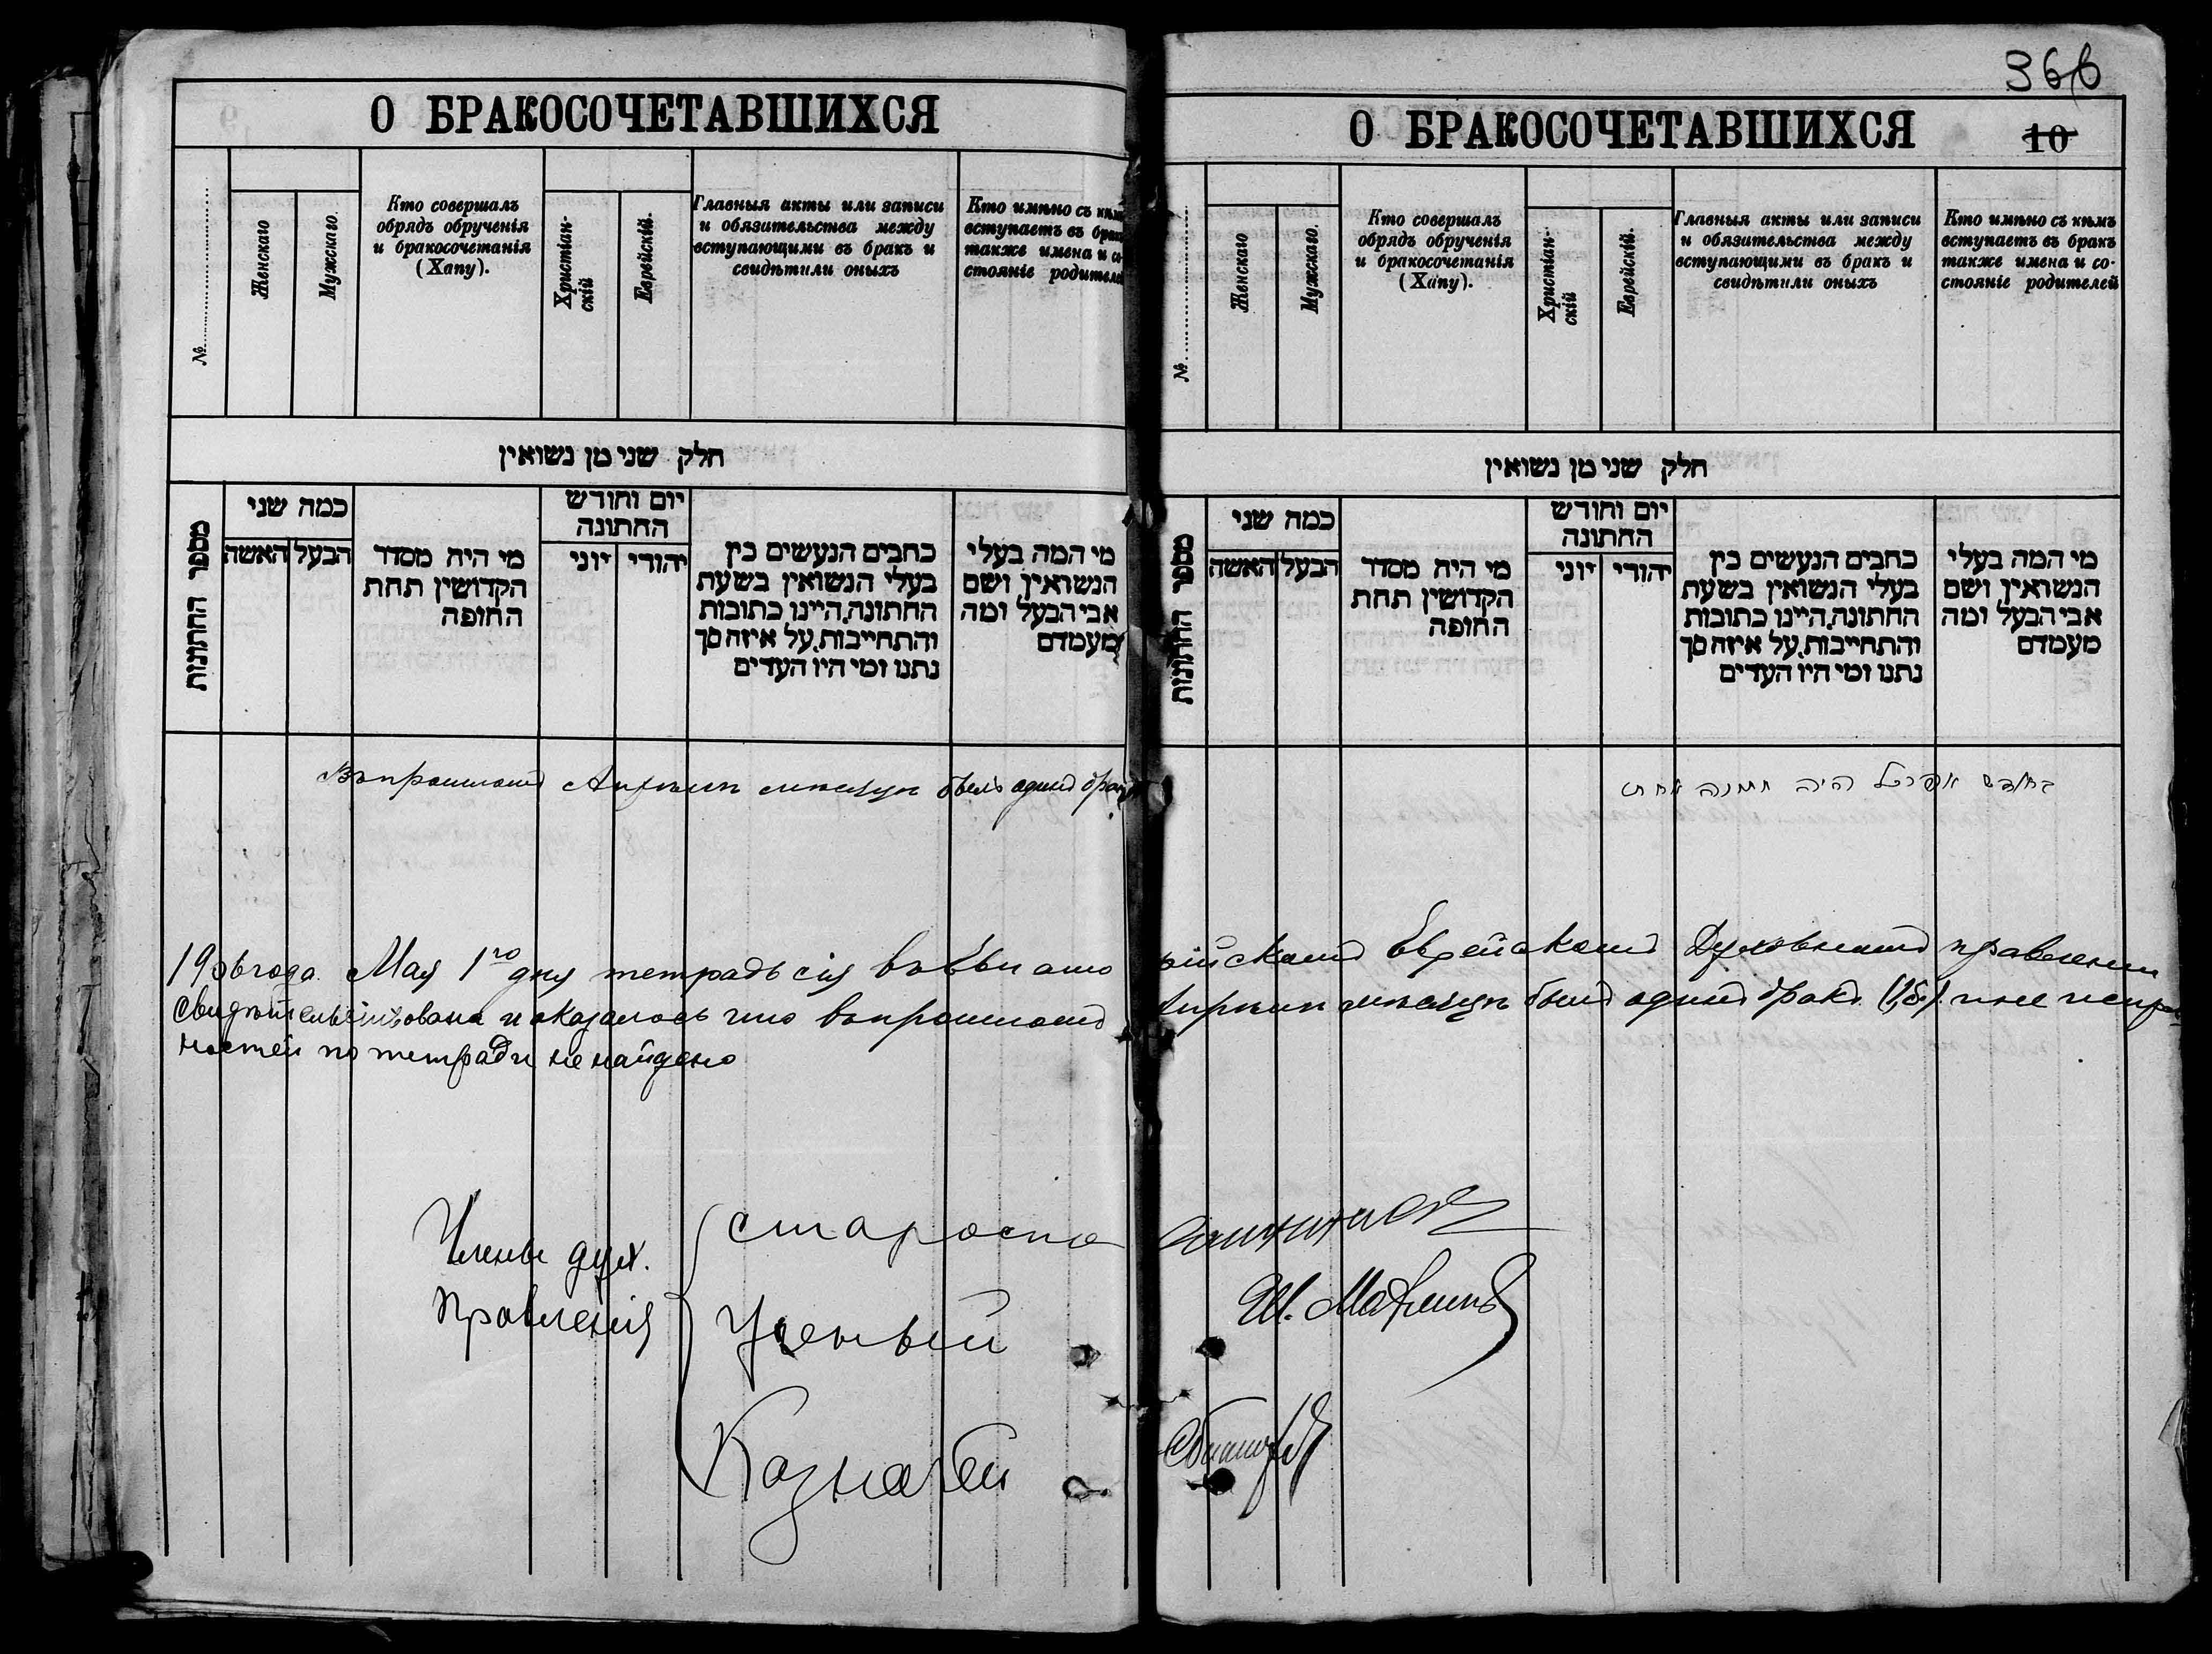 О БРАКОСОЧЕТАВШИХСЯ
№
Женскаго
Мужскаго.
Кто совершалъ
обрядъ обрученія
и бракосочетанія
(Хапу).
Христіан-
скій
Еврейскій.
Главныя акты или записи
и обязательства между
вступающими въ бракъ и
свидѣтили оныхъ
Кто имѣно съ кѣмъ
вступаетъ въ бракъ
также имена и со-
стояніе родителей
חלק שני מן נשואין
מספר החתונות
כמה שני
האשה
הבעל
מי היה מסדר
הקדושין תחת
החופה
יום וחודש
החתונה
יוני
יהודי
כתבים הנעשים בין
בעלי הנשואין בשעת
החתונה,היינו כתובות
והתחייבות,על איזה סך
נתנו ומי היו העדים
מי המה בעלי
הנשואין ושם
אבי הבעל ומה
מעמדם
Въ прошломъ Апрѣлѣ мѣсяцѣ былъ одинъ бракъ
1906 года. Мая 1го дня тетрадь сія въ
свидѣтельствована и оказалось что въ прошломъ
ностей по тетради не найдено
Члены дух.
Правленія
Староста
Ученый
Казначей
366
О БРАКОСОЧЕТАВШИХСЯ
10
№
Женскаго
Мужскаго.
Кто совершалъ
обрядъ обрученія
и бракосочетанія
(Хапу).
Христіан-
скій
Еврейскій.
Главныя акты или записи
и обязательства между
вступающими въ бракъ и
свидѣтили оныхъ
Кто имѣно съ кѣмъ
вступаетъ въ бракъ
также имена и со-
стояніе родителей
חלק שני מן נשואין
מספר החתונות
כמה שני
האשה
הבעל
מי היה מסדר
הקדושין תחת
החופה
יום וחודש
החתונה
יוני
יהודי
כתבים הנעשים בין
בעלי הנשואין בשעת
החתונה,היינו כתובות
והתחייבות,על איזה סך
נתנו ומי היו העדים
מי המה בעלי
הנשואין ושם
אבי הבעל ומה
מעמדם
בחודש אפריל היה חתונה אחת
Еврейскомъ Духовномъ правленіи
Апрѣлѣ мѣсяцѣ былъ одинъ бракъ (1 бр.)
Ш.